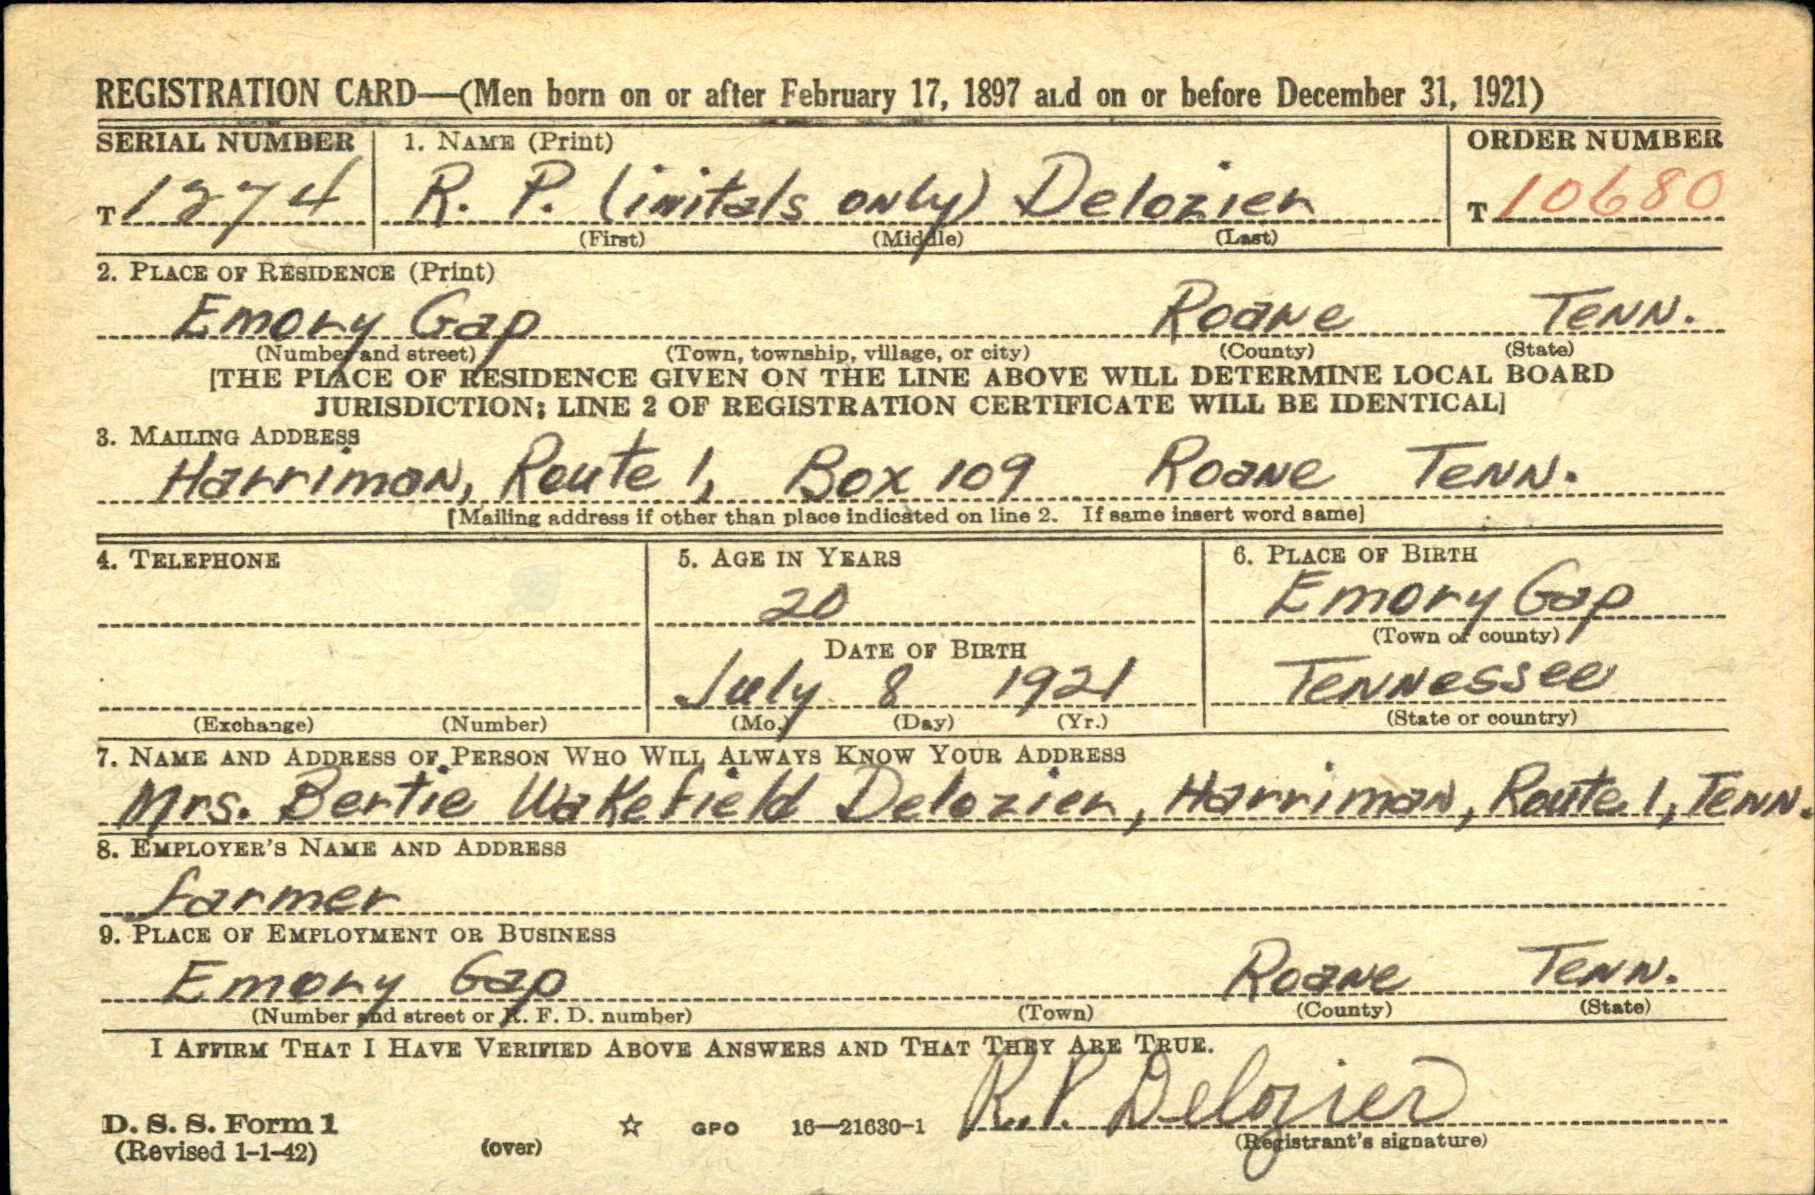 REGISTRATION CARD—(Men born on or after February 17, 1897 and on or before December 31, 1921)
SERIAL NUMBER 1. NAME (Print) ORDER NUMBER
T 1274 R. P. (initals only) Delozier T 10680
(First) (Middle) (Last)
2. PLACE OF RESIDENCE (Print)
Emory Gap Roane Tenn.
(Number and street) (Town, township, village, or city) (County) (State)
[THE PLACE OF RESIDENCE GIVEN ON THE LINE ABOVE WILL DETERMINE LOCAL BOARD
JURISDICTION; LINE 2 OF REGISTRATION CERTIFICATE WILL BE IDENTICAL]
3. MAILING ADDRESS
Harriman, Route 1, Box 109 Roane Tenn.
[Mailing address if other than place indicated on line 2. If same insert word same]
4. TELEPHONE 5. AGE IN YEARS 6. PLACE OF BIRTH
20 Emory Gap
(Town or county)
DATE OF BIRTH
July 8 1921 Tennessee
(Exchange) (Number) (Mo.) (Day) (Yr.) (State or country)
7. NAME AND ADDRESS OF PERSON WHO WILL ALWAYS KNOW YOUR ADDRESS
Mrs. Bertie Wakefield Delozier, Harriman, Route 1, Tenn.
8. EMPLOYER'S NAME AND ADDRESS
farmer
9. PLACE OF EMPLOYMENT OR BUSINESS
Emory Gap Roane Tenn.
(Number and street or R. F. D. number) (Town) (County) (State)
I AFFIRM THAT I HAVE VERIFIED ABOVE ANSWERS AND THAT THEY ARE TRUE.
R.P. Delozier
D. S. S. Form 1 GPO 16—21630-1
(Revised 1-1-42) (over) (Registrant's signature)